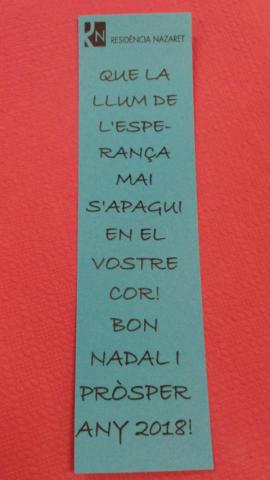 RN RESIDÈNCIA NAZARET
QUE LA
LLUM DE
L'ESPE-
RANÇA
MAI
S'APAGUI
EN EL
VOSTRE
COR!
BON
NADAL I
PRÒSPER
ANY 2018!